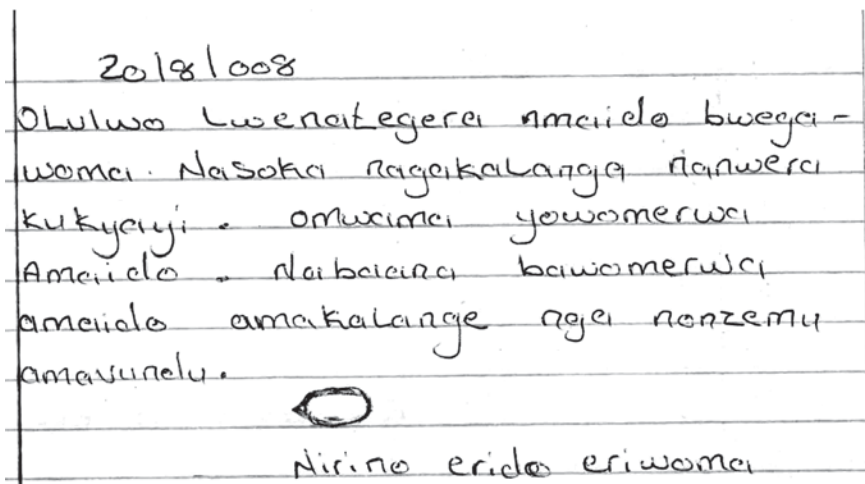 2018/008
OLulwo Lwenategera nmaido bwega-
woma. Nasoka nagakaLanga nanwera
kukyayi. omwama yowomerwa
Amaido. Naibaana bawomerwa
amaido amakaLange nga nonzemu
amavundu.
Nirino erido eriwoma